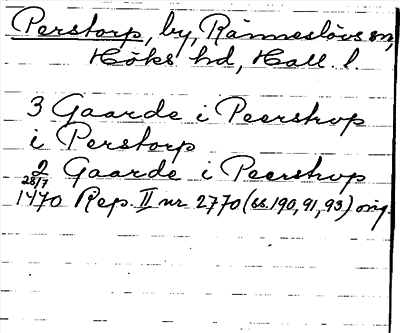 Perstorp, by, Ränneslövs sn,
Höks hd, Hall. l.
3 Gaarde i Peerstrop
i Perstorp
2 Gaarde i Peerstrop
28/7
1470 Rep. II nr 2770 (ss. 190, 91, 93) orig.